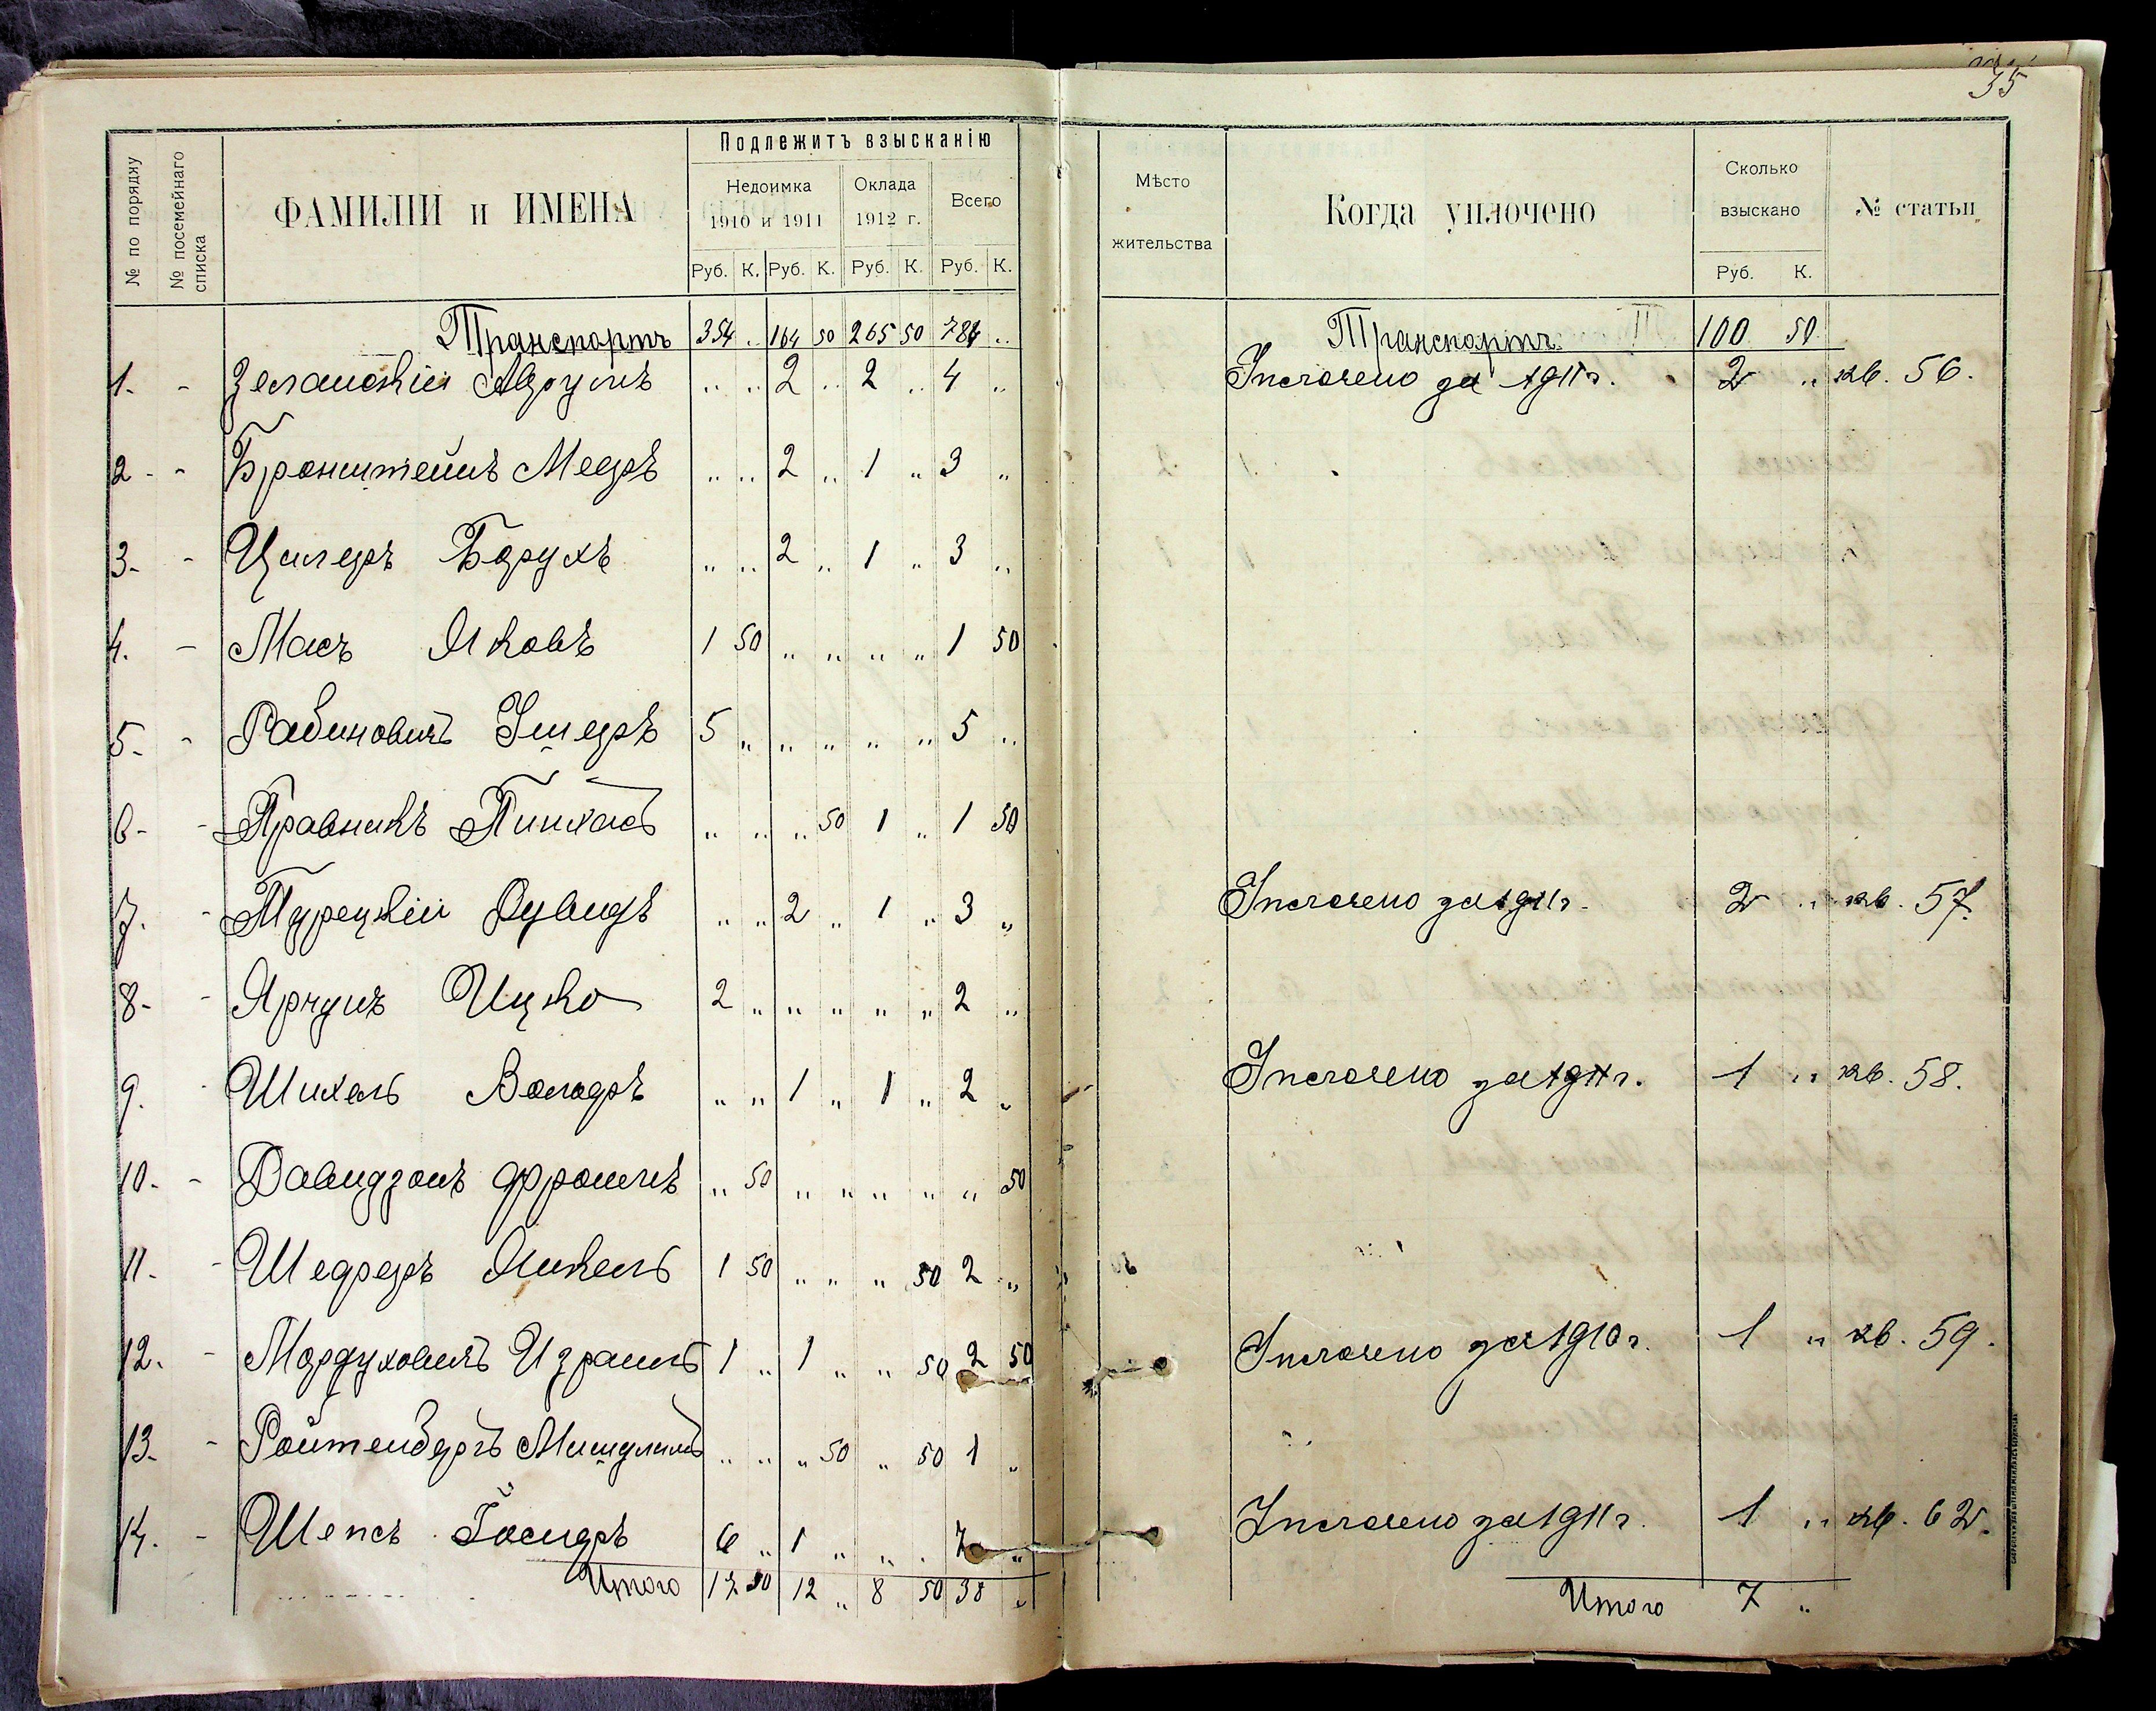 35
Подлежитъ взысканію
№ по порядку
№ посемейнаго списка
ФАМИЛІИ и ИМЕНА
Недоимка 1910 и 1911
Оклада 1912 г.
Всего
Руб. К. Руб. К. Руб. К. Руб. К.
Мѣсто жительства
Когда уплочено
Сколько взыскано
Руб. К.
№ статьи
Транспортъ 354 „ 164 50 265 50 784 „ Транспортъ 100 50
1. - Аврумъ „ „ 2 „ 2 „ 4 „ Уплочено за 1911 г. 2 „ кв. 56.
2 - - Бронштейнъ Мееръ „ „ 2 „ 1 „ 3 „
3. - Цилеръ Борухъ „ „ 2 „ 1 „ 3 „
4. - Мась Яковъ 1 50 „ „ „ „ 1 50
5. - Рабиновичъ Ушеръ 5 „ „ „ „ „ 5 „
6 - - Правникъ Пинхасъ „ „ „ 50 1 „ 1 50
7. - Турецкій Дувидъ „ „ 2 „ 1 „ 3 „ Уплочено за 1911 г. 2 „ кв. 57.
8 - - Ярчукъ Ицко 2 „ „ „ „ „ 2 „
9. - Шихель Вольфъ „ „ 1 „ 1 „ 2 „ Уплочено за 1911 г. 1 „ кв. 58.
10. - Давидзонъ Фроимъ „ 50 „ „ „ „ „ 50
11. - Шефферъ Янкель 1 50 „ „ „ 50 2 „
12. - Мордуховичъ Израиль 1 „ 1 „ „ 50 2 50 Уплочено за 1910 г. 1 „ кв. 59.
13. - Ройтенбергъ Мишулимъ „ „ „ 50 „ 50 1 „
14. - Шепсъ 6 „ 1 „ „ „ 7 „ Уплочено за 1911 г. 1 „ кв. 62.
Итого 17 50 12 „ 8 50 38 „ Итого 7 „